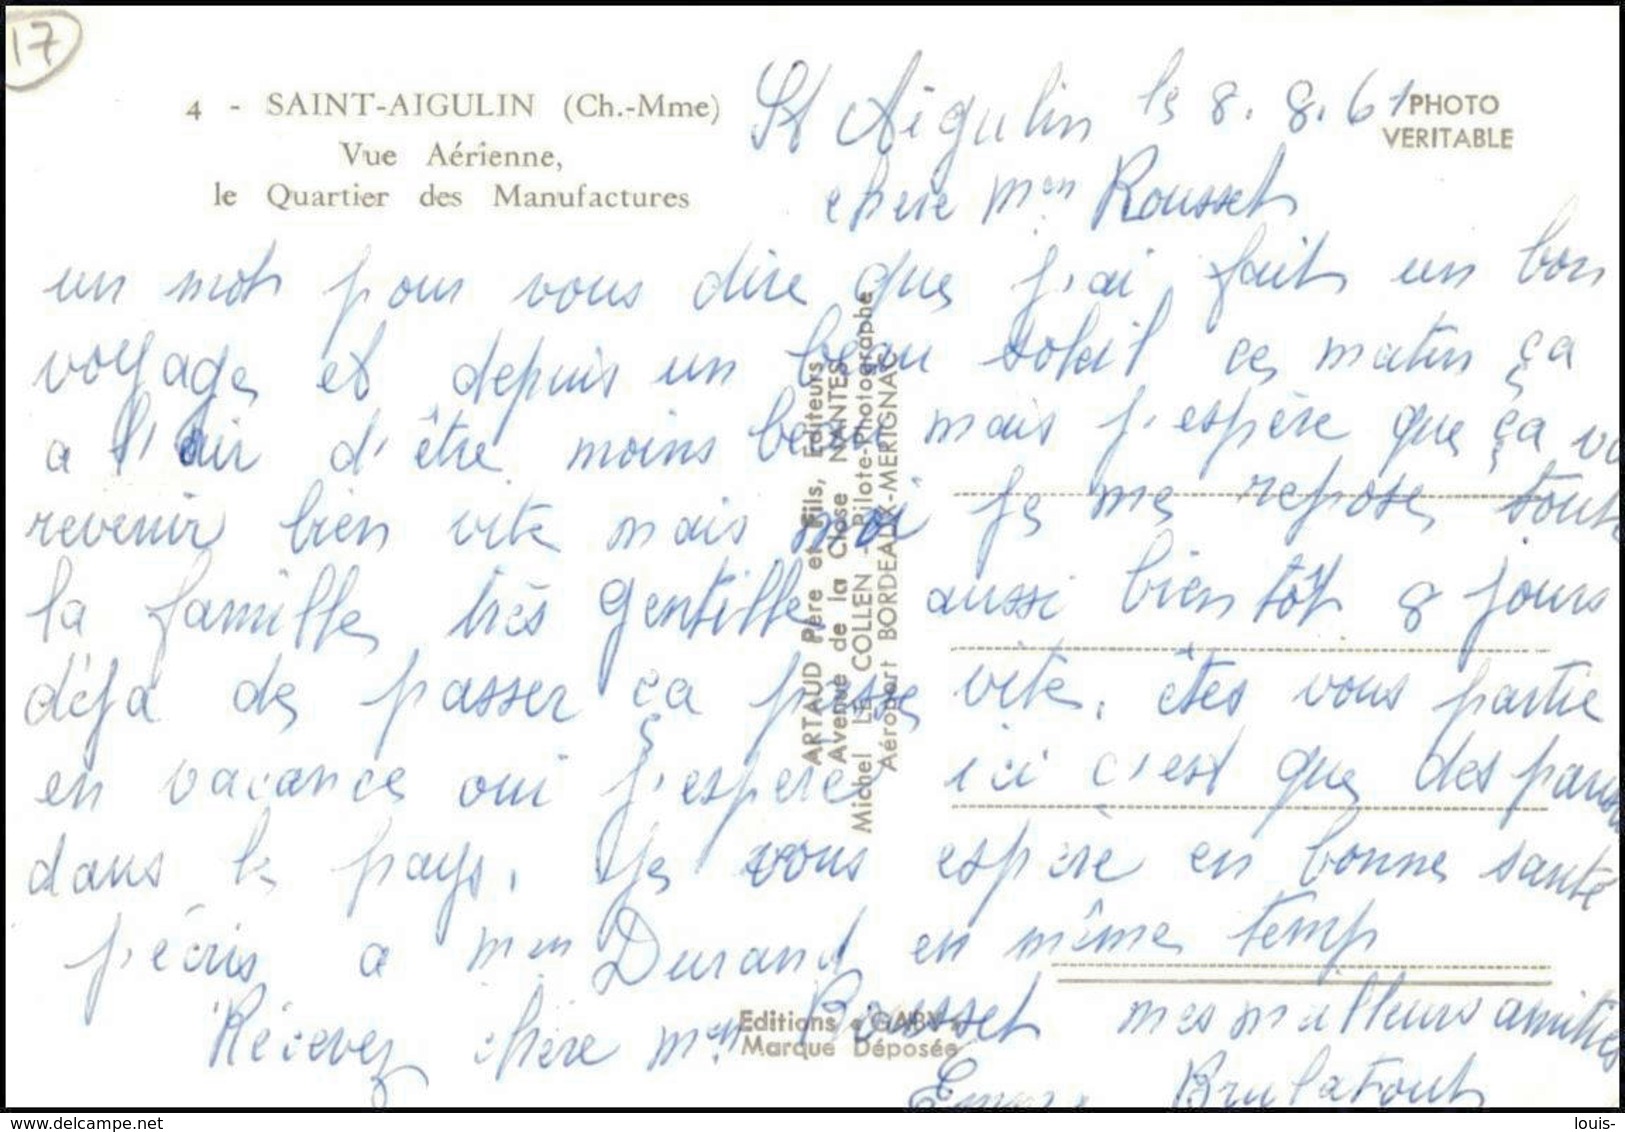 17
4 - SAINT-AIGULIN (Ch.-Mme)
Vue Aérienne,
le Quartier des Manufactures
PHOTO
VERITABLE
St Aigulin le 8.8.61
chère Mme Rousset
un mot pour vous dire que j'ai fait un bon
voyage et depuis un beau soleil ce matin ça
a l'air d'être moins beau mais j'espère que ça va
revenir bien vite mais moi je me repose toute
la famille très gentille aussi bientôt 8 jours
déja de passer ça passe vite. êtes vous partie
en vacance oui j'espère ici c'est que des
dans le pays. Je vous espère en bonne santé
j'écris a Mme Durand en même temp
Recevez chère Mme Rousset mes meilleurs amitiés
Brulatout
ARTAUD Père et Fils, Editeurs
Avenue de la Close NANTES
Michel LE COLLEN - Pilote-Photographe
Aéroport BORDEAUX-MERIGNAC
Editions « GABY »
Marque Déposée
louis-